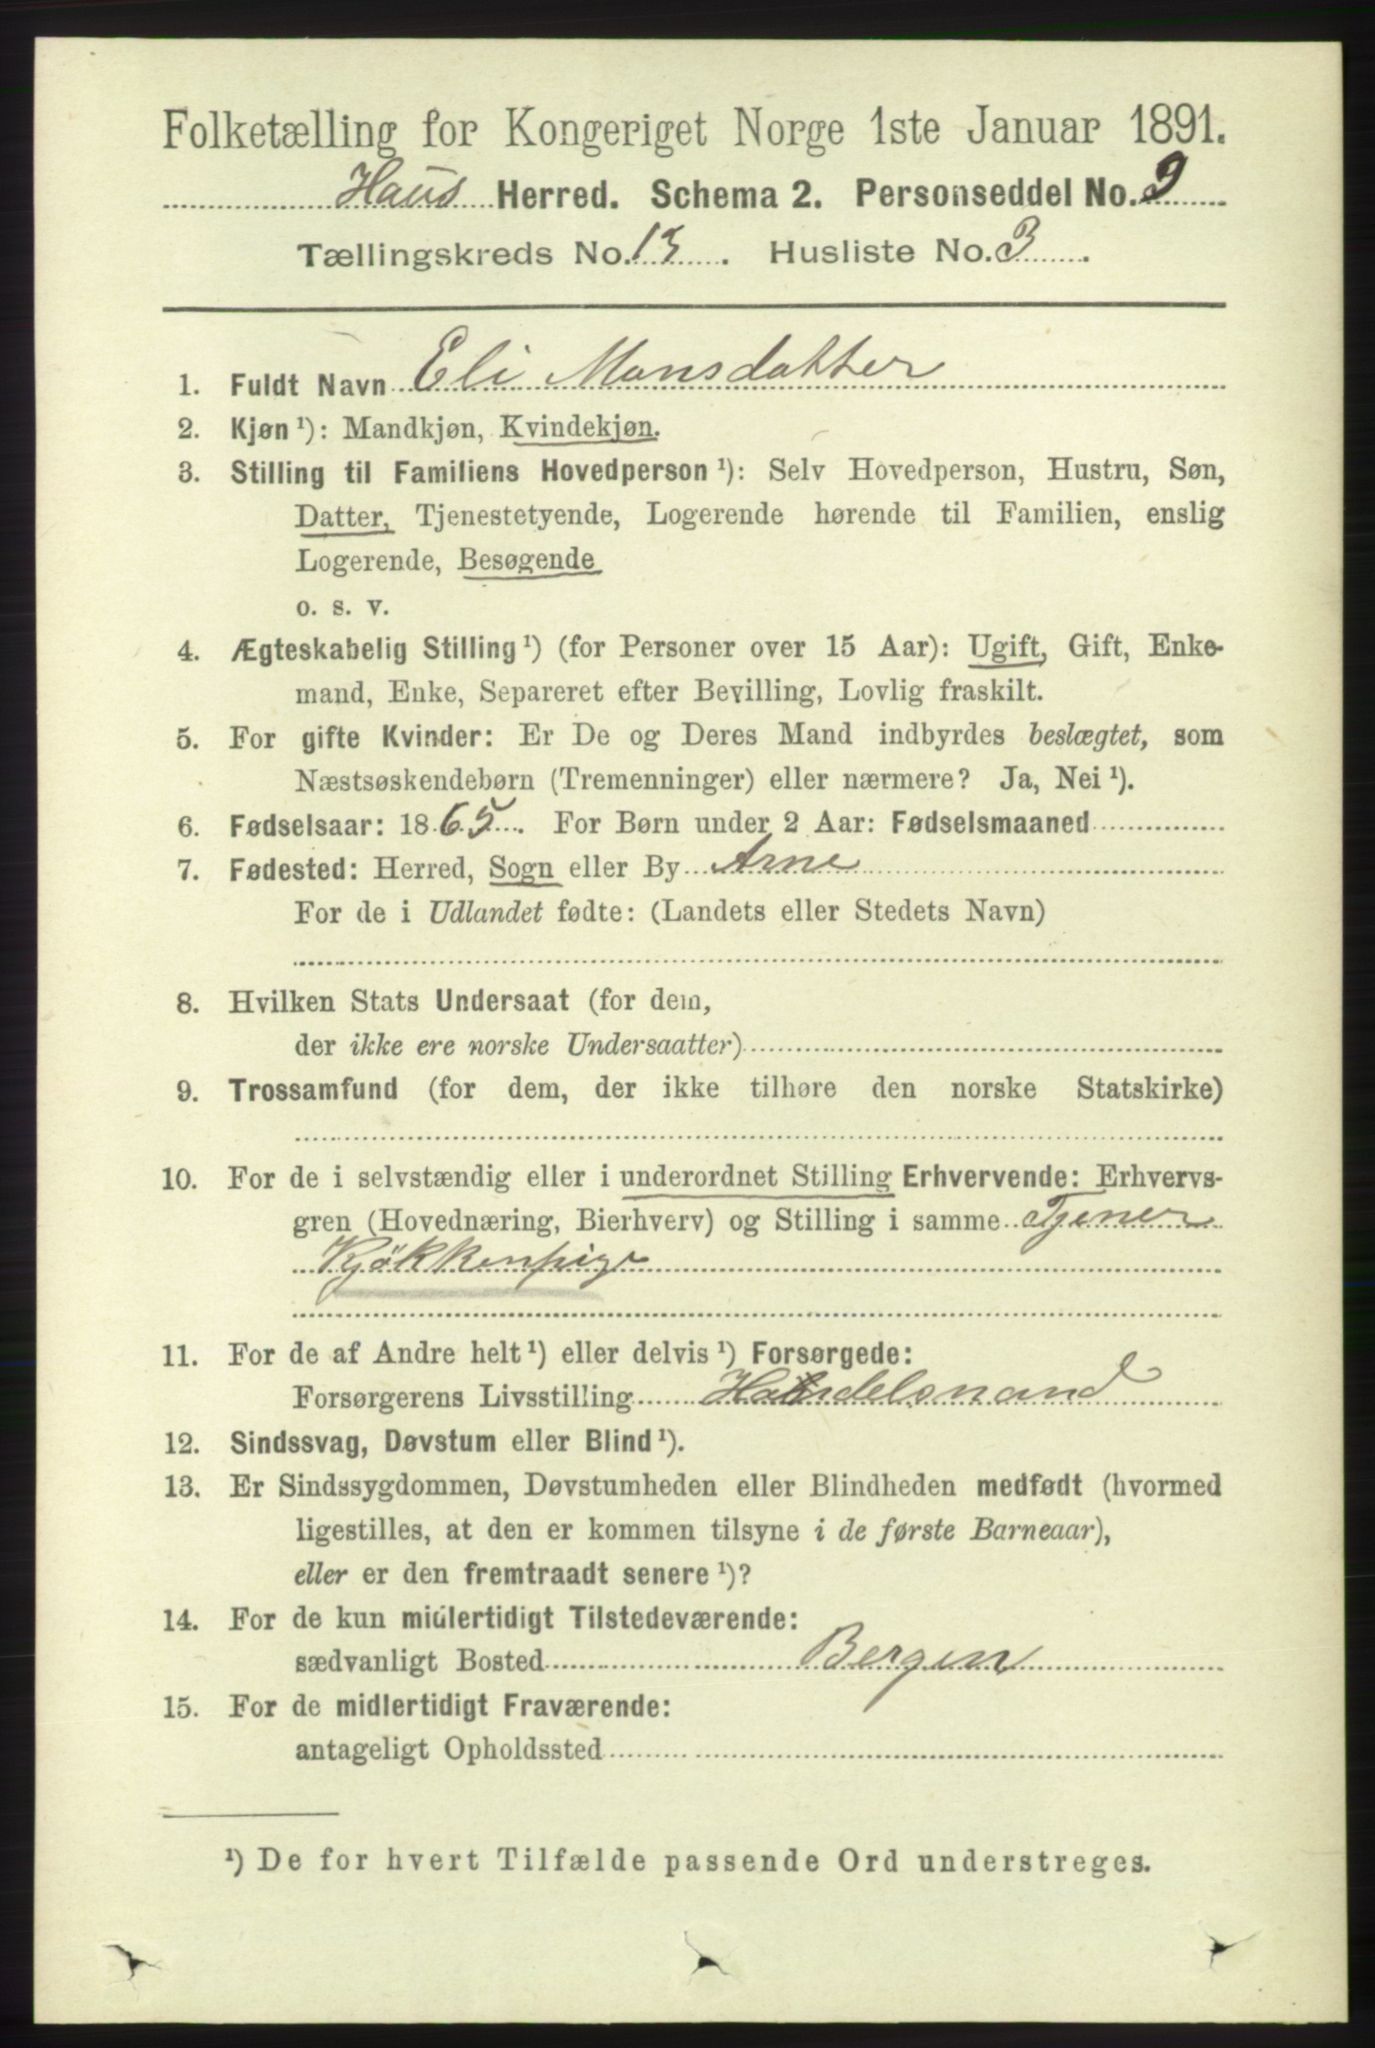 Folketælling for Kongeriget Norge 1ste Januar 1891.
Haus Herred. Schema 2. Personseddel No. 9
Tællingskreds No. 13. Husliste No. 3.
1. Fuldt Navn Eli Monsdatter
2. Kjøn ¹): Mandkjøn, Kvindekjøn.
3. Stilling til Familiens Hovedperson ¹): Selv Hovedperson, Hustru, Søn,
Datter, Tjenestetyende, Logerende hørende til Familien, enslig
Logerende, Besøgende
o. s. v.
4. Ægteskabelig Stilling ¹) (for Personer over 15 Aar): Ugift, Gift, Enke-
mand, Enke, Separeret efter Bevilling, Lovlig fraskilt.
5. For gifte Kvinder: Er De og Deres Mand indbyrdes beslægtet, som
Næstsøskendebørn (Tremenninger) eller nærmere? Ja, Nei ¹).
6. Fødselsaar: 1865. For Børn under 2 Aar: Fødselsmaaned
7. Fødested: Herred, Sogn eller By Arne
For de i Udlandet fødte: (Landets eller Stedets Navn)
8. Hvilken Stats Undersaat (for dem,
der ikke ere norske Undersaatter)
9. Trossamfund (for dem, der ikke tilhøre den norske Statskirke)
10. For de i selvstændig eller i underordnet Stilling Erhvervende: Erhvervs-
gren (Hovednæring, Bierhverv) og Stilling i samme Tjener
Kjökkenpige
11. For de af Andre helt ¹) eller delvis ¹) Forsørgede:
Forsørgerens Livsstilling Handelsmand
12. Sindssvag, Døvstum eller Blind ¹).
13. Er Sindssygdommen, Døvstumheden eller Blindheden medfødt (hvormed
ligestilles, at den er kommen tilsyne i de første Barneaar),
eller er den fremtraadt senere ¹)?
14. For de kun midlertidigt Tilstedeværende:
sædvanligt Bosted Bergen
15. For de midlertidigt Fraværende:
antageligt Opholdssted
¹) De for hvert Tilfælde passende Ord understreges.